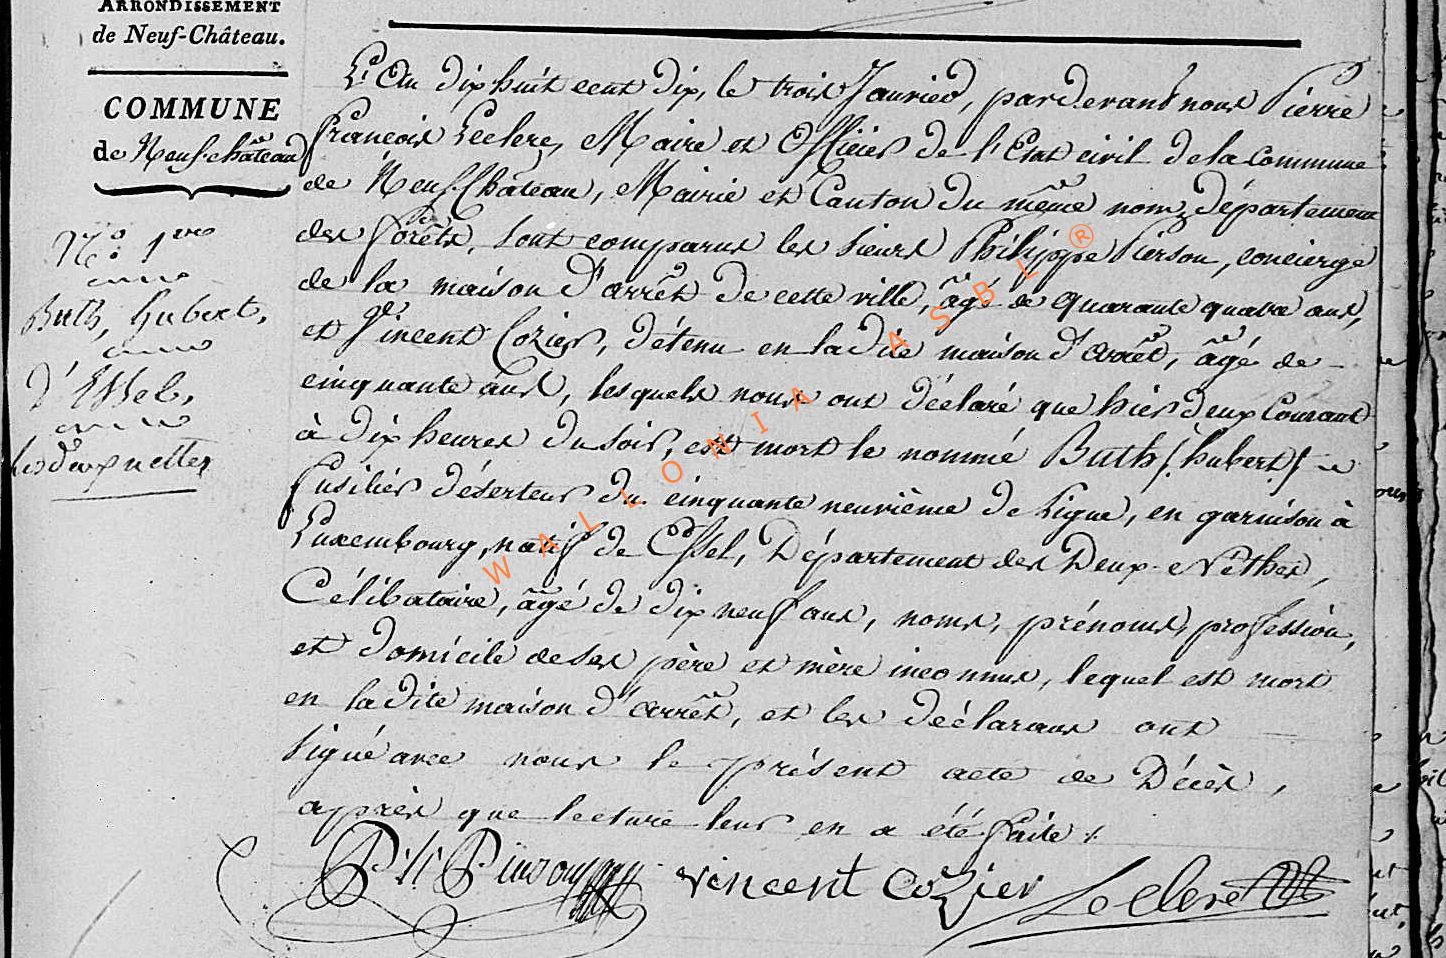 ARRONDISSEMENT
de Neuf-Château.
COMMUNE
de Neufchâteau
N.º 1ere
Buth, hubert,
d'Essel,
L'An dix huit cent dix, le trois Janvier, pardevant nous Pierre
François Leclerc, Maire et Officier de l'Etat civil de la Commune
de Neufchâteau, Mairie et Canton du même nom, département
des forêts, sont comparus les sieurs Philippe Pierson, concierge
de la maison d'arrêt de cette ville, âgé de quarante quatre ans,
et Vincent Cozier, détenu en la dite maison d'arrêt, âgé de
cinquante ans, lesquels nous ont déclaré que hier deux Courant
à dix heures du soir, est mort le nommé Buth /hubert/
fusilier déserteur du cinquante neuvième de ligne, en garnison à
Luxembourg, natif de Essel, Département des Deux-Nèthes,
Célibataire, âgé de dix neuf ans, noms, prénoms, profession,
et domicile de ses père et mère inconnus, lequel est mort
en la dite maison d'arrêt, et les déclarans ont
signé avec nous le présent acte de Décès,
après que lecture leur en a été faite.
Ph Pierson vincent cozier Leclerc
WALLONIA ASBL ®